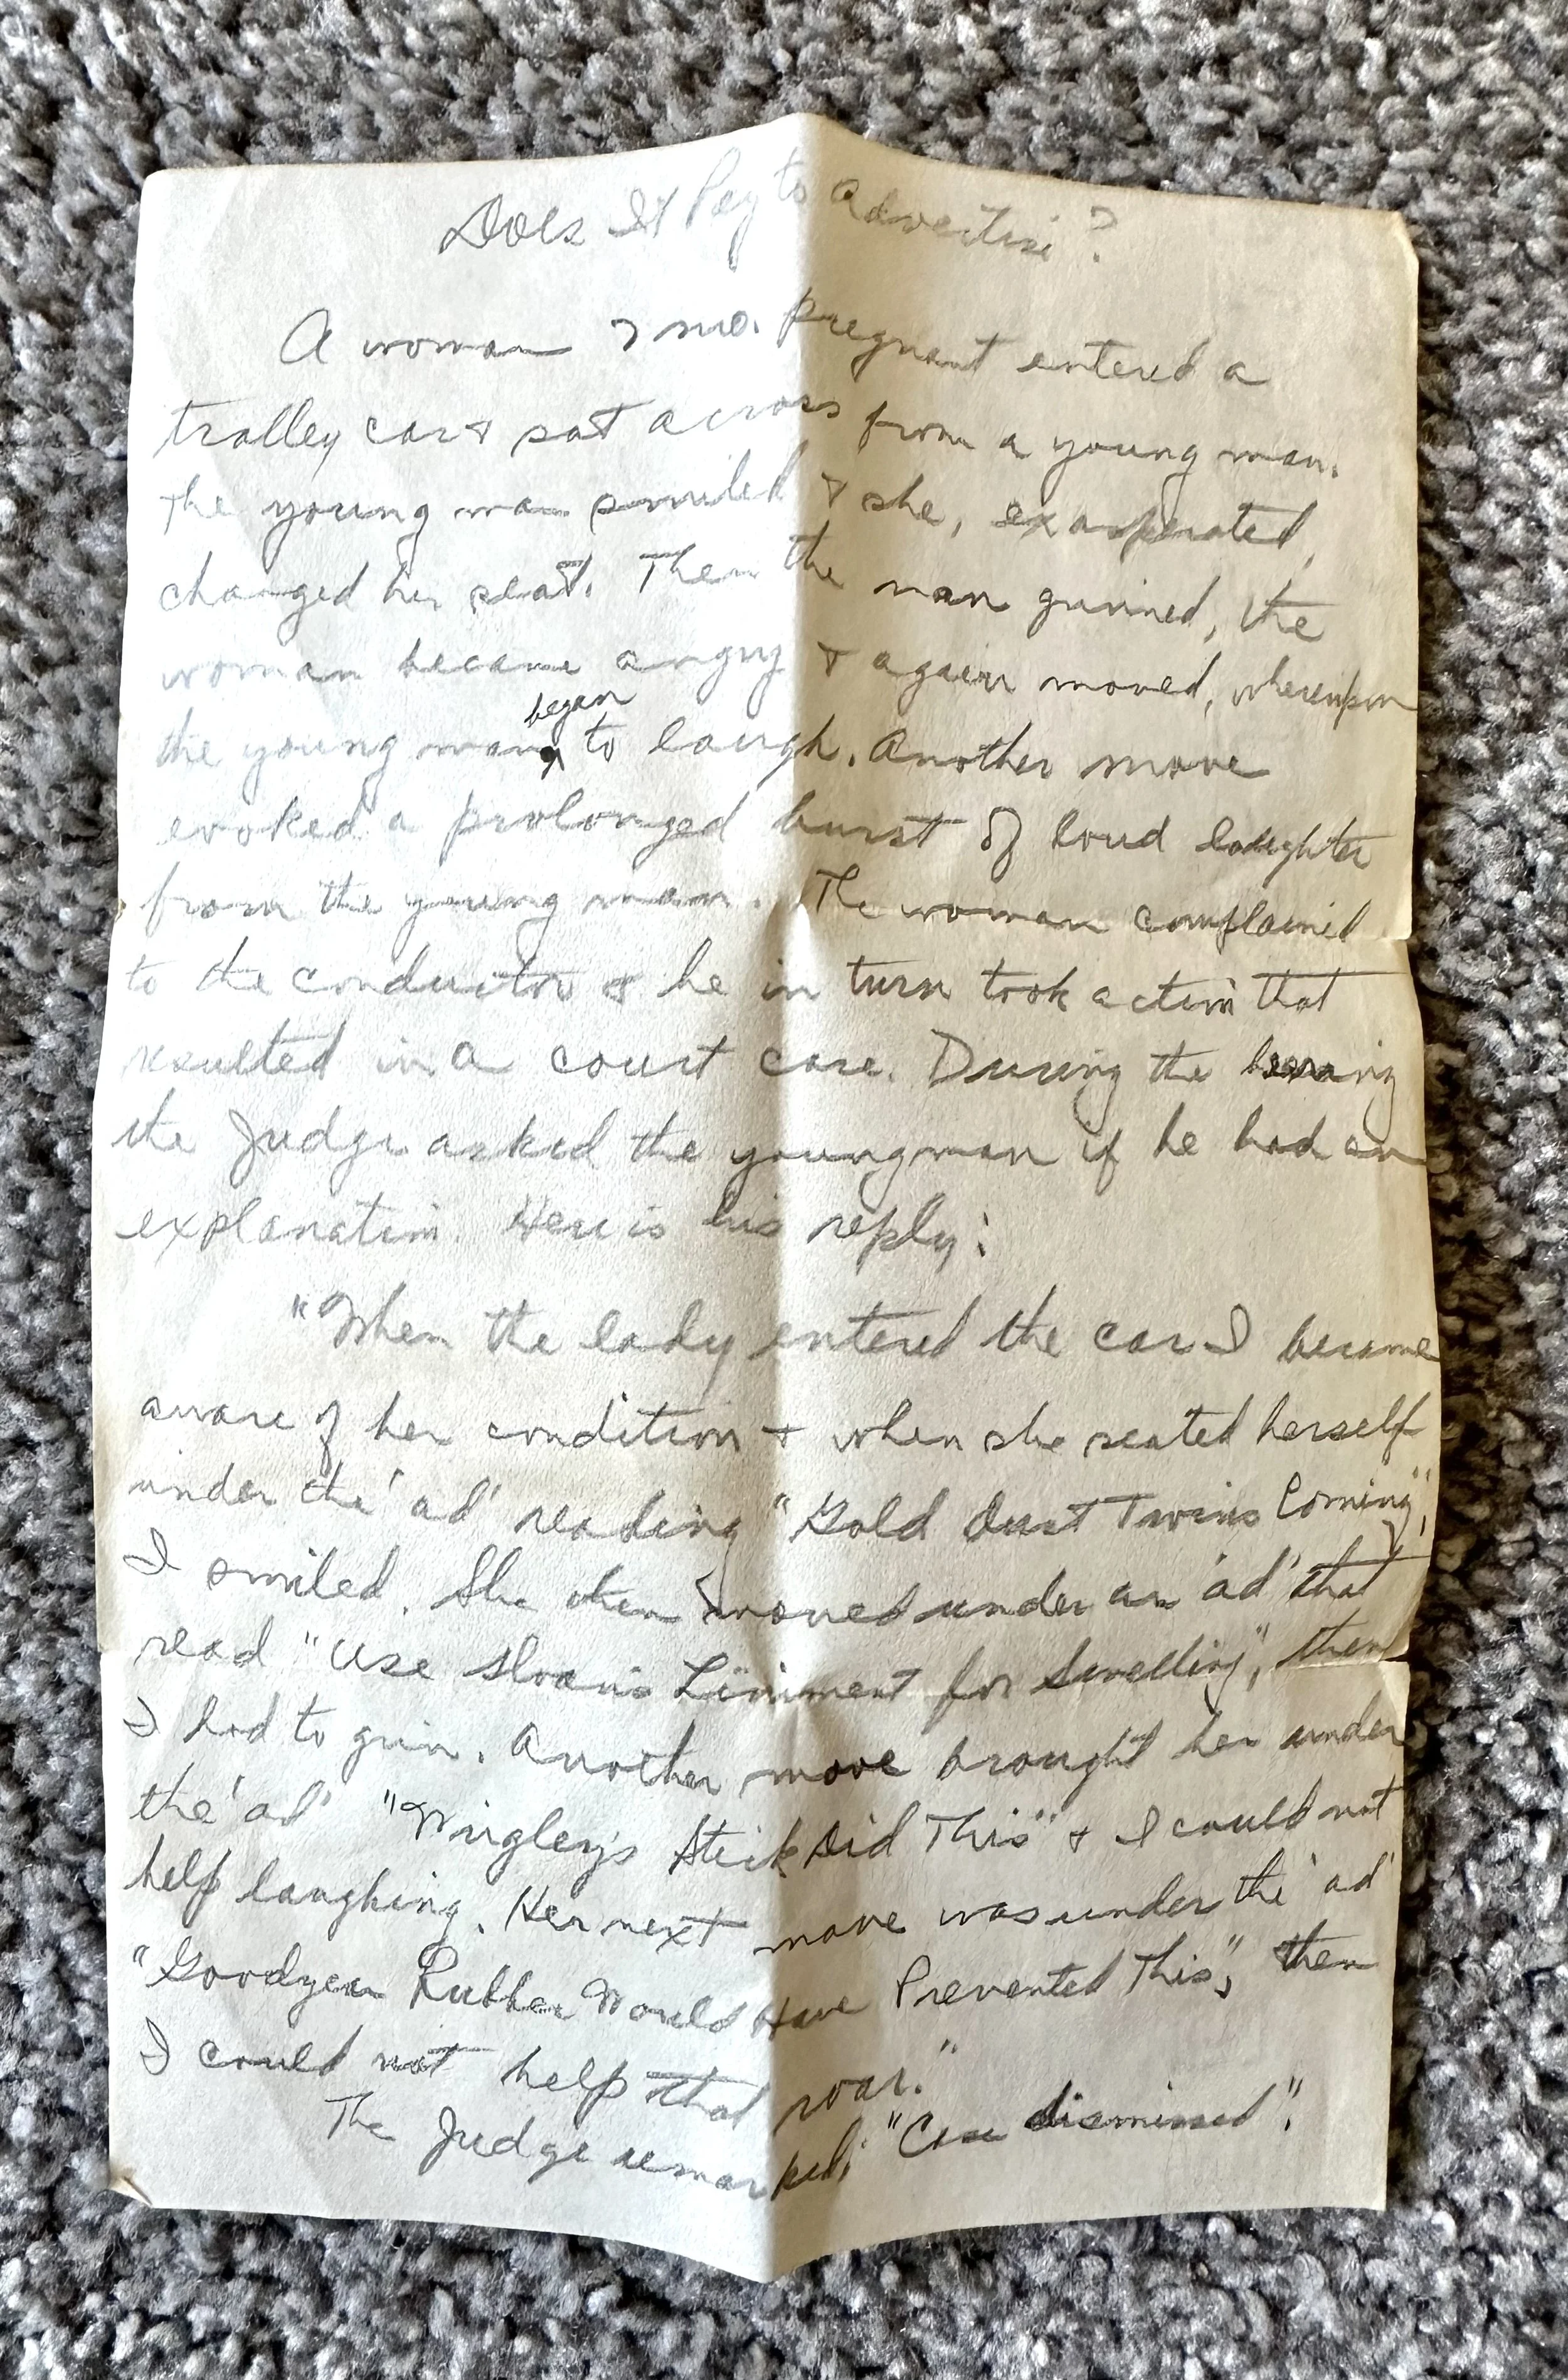 Does It Pay to Advertise?
A woman 7 mo. pregnant entered a
trolley car & sat across from a young man.
The young man smiled & she, exasperated,
changed her seat. Then the man grinned, the
woman became angry & again moved, whereupon
began
the young man to laugh. Another move
evoked a prolonged burst of loud laughter
from the young man. The woman complained
to the conductor & he in turn took action that
resulted in a court case. During the hearing
the Judge asked the young man if he had an
explanation. Here is his reply:
"When the lady entered the car I became
aware of her condition & when she seated herself
under the 'ad' reading "Gold Dust Twins Coming",
I smiled. She then moved under an 'ad' that
read "Use Sloan's Liniment for Swelling", then
I had to grin. Another move brought her under
the 'ad' "Wrigley's Stick Did This" & I could not
help laughing. Her next move was under the 'ad'
"Goodyear Rubber Would Have Prevented This", then
I could not help that roar."
The Judge remarked: "Case dismissed".